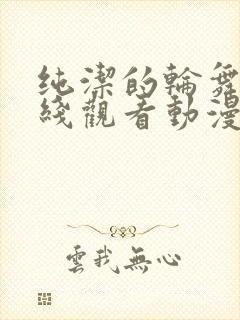 純潔的輪舞
綫觀看動漫
雲我無心